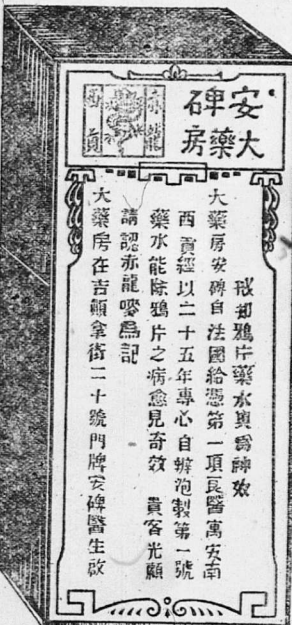 安碑
大藥房
赤龍
西貢
戒却鴉片藥水異爲神效
大藥房安碑自法國給憑第一項良醫寓安南
西貢經以二十五年專心自辦泡製第一號
藥水能除鴉片之病愈見奇效 貴客光顧
請認赤龍嘜爲記
大藥房在吉顚拿街二十號門牌安碑醫生啟